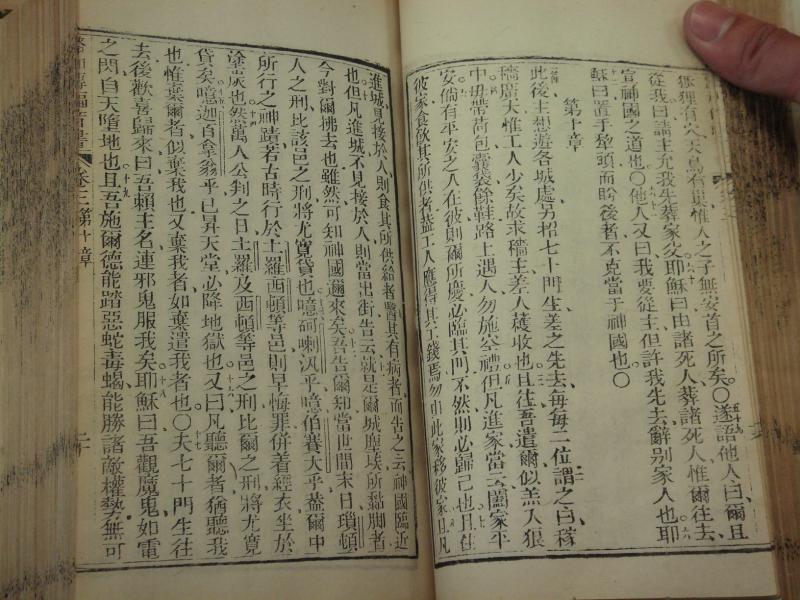 狐狸有穴天鳥有巢惟人之子無安首之所矣〇遂語他人曰爾且
從我曰請主允我先葬家父耶穌曰由諸死人葬諸死人惟爾往去
宣神國之道也〇他人又曰我要從主但許我先去辭别家人也耶
穌曰置手犂頭而盻後者不克當于神國也〇
第十章
此後主想遊各城處另招七十門生差之先去每每二位謂之曰稼
穡廣大惟工人少矣故求穡主差人蕿收也且往吾遣爾似羔入狼
中毋帶荷包囊袋條鞋路上遇人勿施空禮但凡進家當云闔家平
安倘有平安之人在彼則爾所慶必臨其門不然則必歸己也且住
彼家食飲其所供者蓋工人應得其工錢焉勿由此家移彼家且凡
進城見接於人則食其所供給者醫其有病者而告之云神國臨近
也但凡進城不見接於人則當出街告云就是爾城塵埃所黏脚者
今對爾拂去也雖然可知神國邇來矣吾告爾知當世間末日瑣頓
人之刑比該邑之刑將尤寬貸也噫哥喇汎乎噫伯賽大乎蓋爾中
所行之神蹟若古時行於土羅西頓等邑則早悔罪併着絰衣坐於
塗灰也然萬人公判之日土羅及西頓等邑之刑比爾之刑將尤寬
貸矣噫迦百拿翁乎已昇天堂必降地獄也又曰凡聽爾者猶聽我
也惟棄爾者似棄我也又棄我者如棄遣我者也〇夫七十門生往
去後歡喜歸來曰吾賴主名連邪鬼服我矣耶穌曰吾觀魔鬼如電
之閃自天墮地也且吾施爾德能踏惡蛇毒蝎能勝諸敵權勢無可
卷三第十章